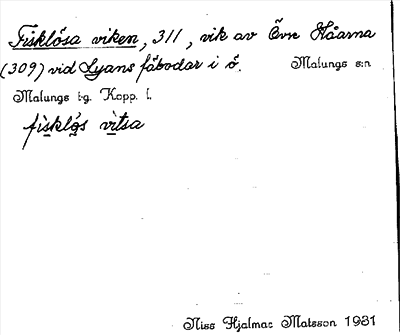 Fisklösa viken, 311, vik av Övre Håarna
(309) vid Lyans fäbodar i ö. Malungs s:n
Malungs tg. Kopp. l.
fìsklǫ́s vìtsa
Niss Hjalmar Matsson 1931